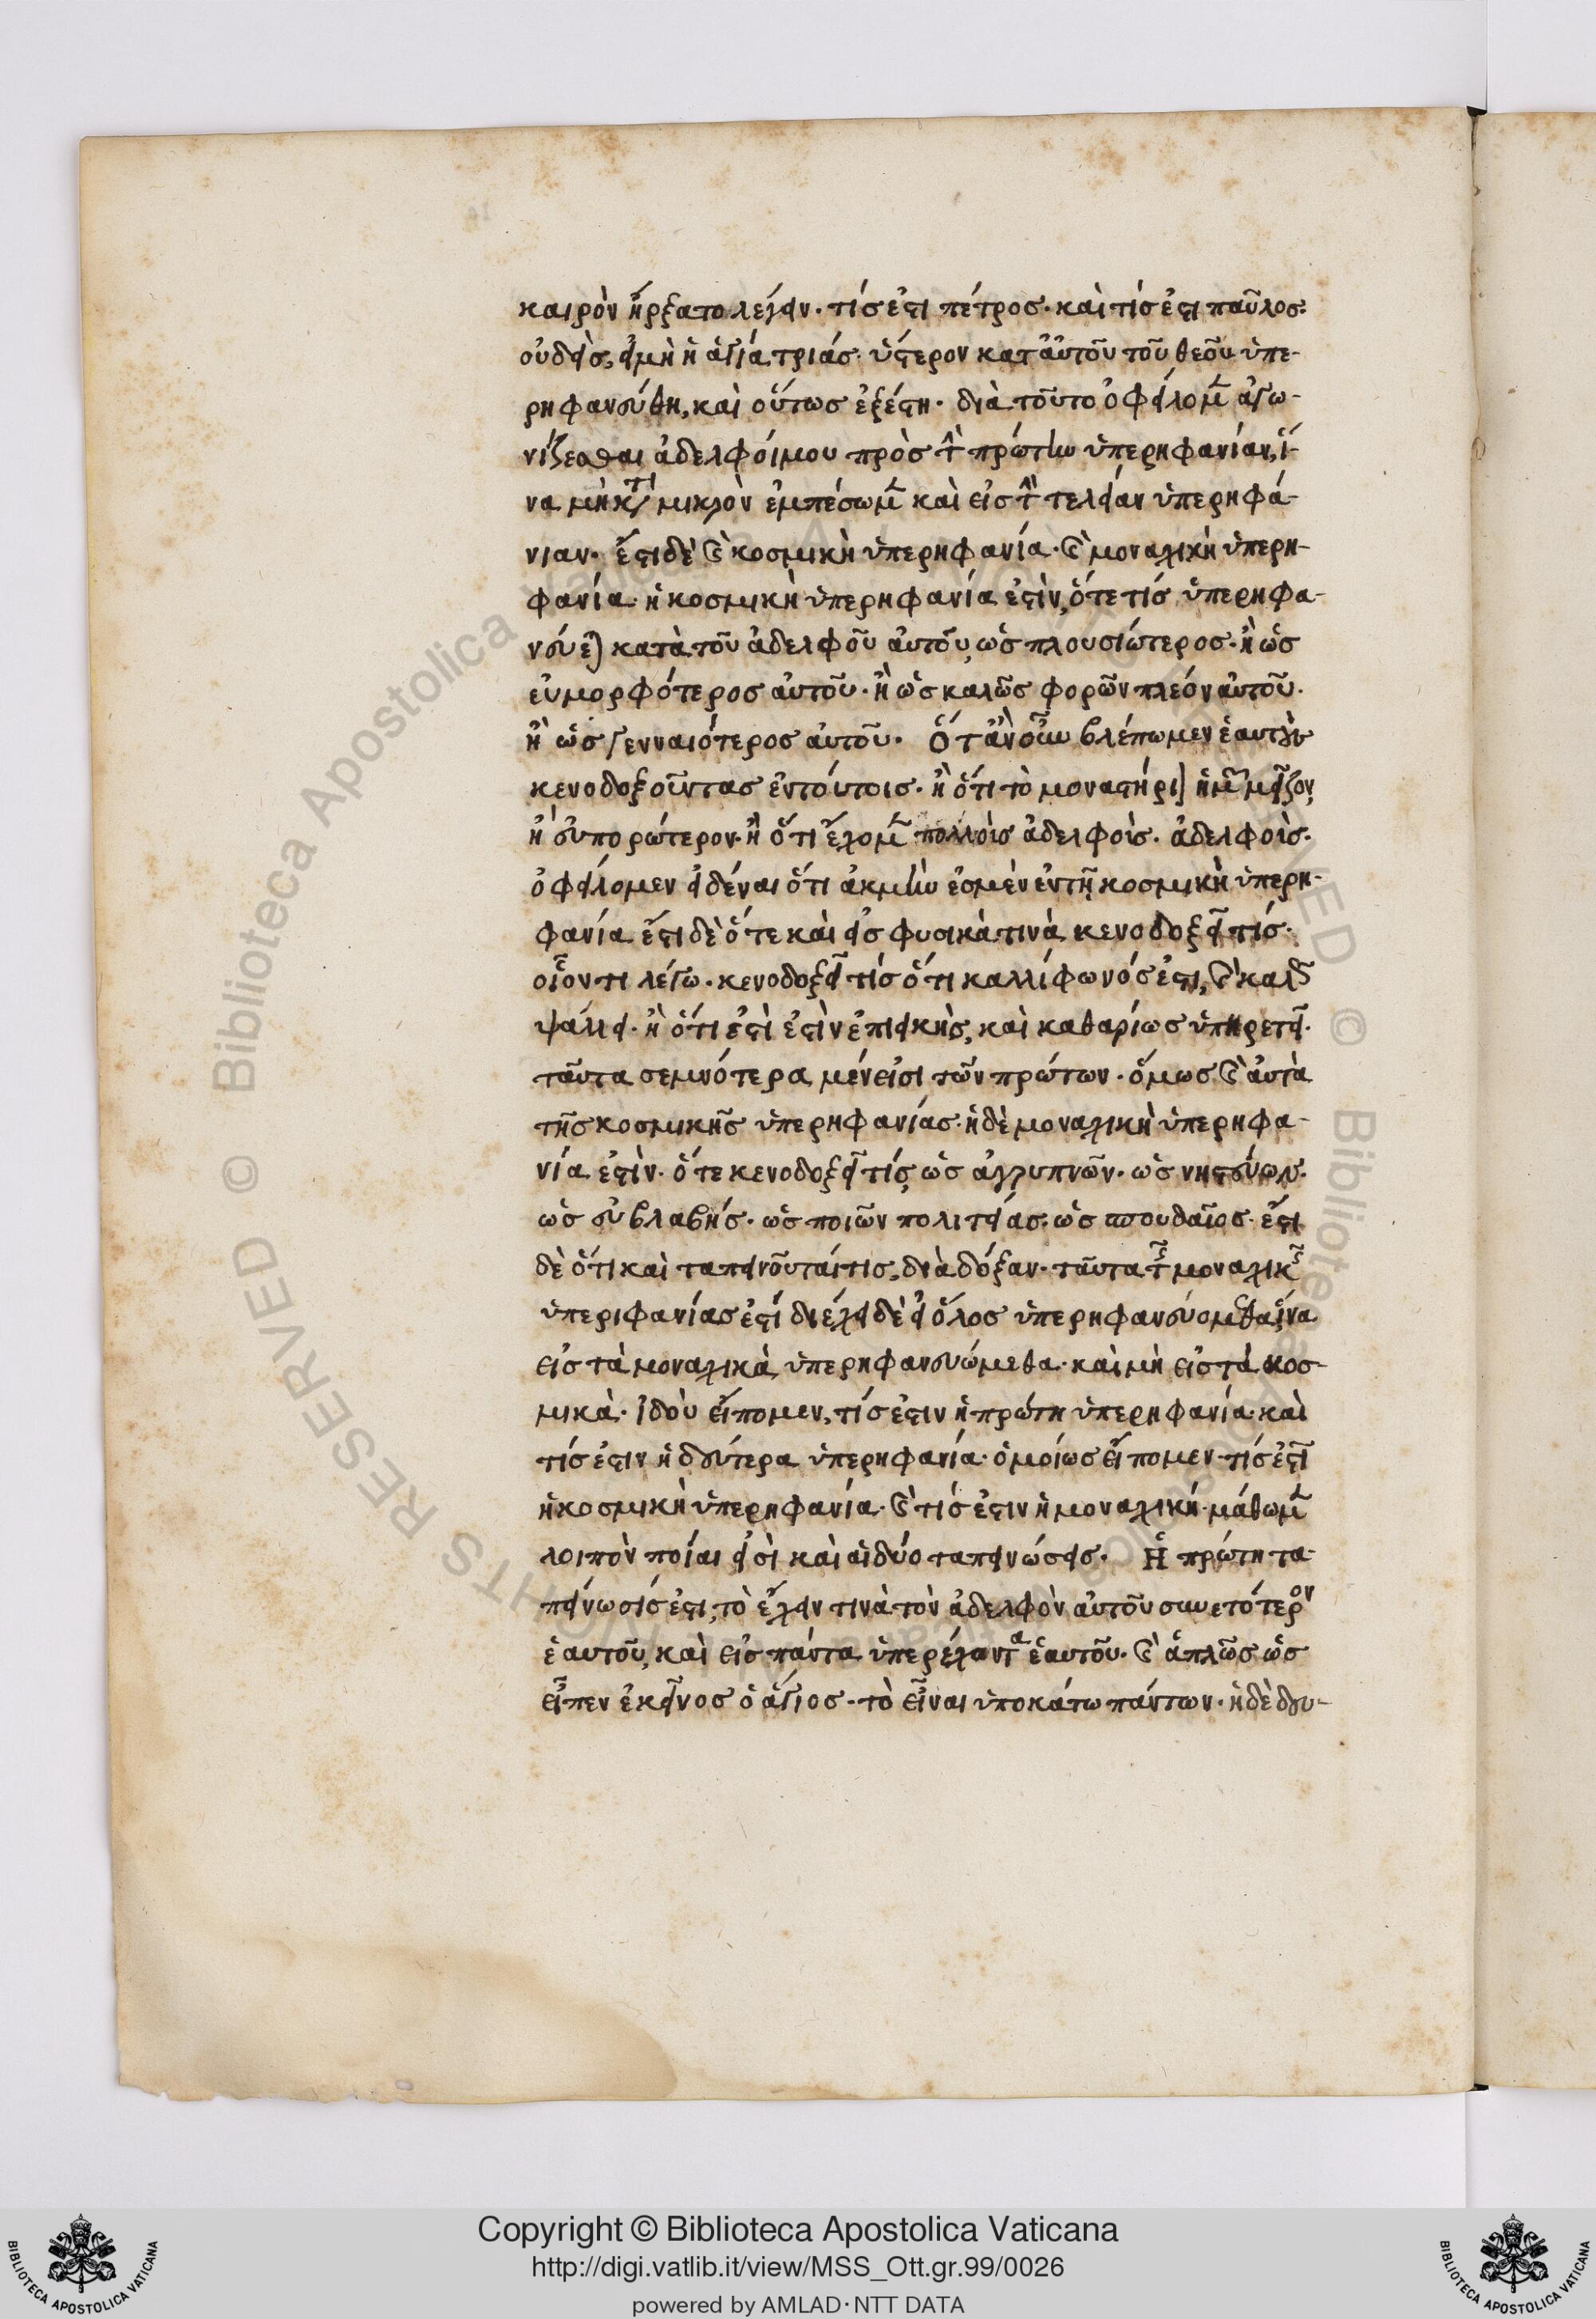 καιρὸν ἤρξατο λέγειν· τίς ἐστι πέτρος· καὶ τίς ἐστι παῦλος·
οὐδεὶς, εἰμὴ ἡ ἁγία τριάς· ὕστερον κατ' αὐτοῦ τοῦ θεοῦ ὑπε-
ρηφανεύθη, καὶ οὕτως ἐξέστη· διὰ τοῦτο ὀφείλομεν ἀγω-
νίζεσθαι ἀδελφοίμου πρὸς τὴν πρώτην ὑπερηφανίαν, ἵ-
να μὴ κατὰ μικρὸν ἐμπέσωμεν καὶ εἰς τὴν τελείαν ὑπερηφά-
νιαν· ἔστι δὲ καὶ κοσμικὴ ὑπερηφανία· καὶ μοναχικὴ ὑπερη-
φανία· ἡ κοσμικὴ ὑπερηφανία ἐστὶν, ὅτε τίς ὑπερηφα-
νεύεται κατὰ τοῦ ἀδελφοῦ αὐτοῦ, ὡς πλουσιώτερος· ἢ ὡς
εὐμορφότερος αὐτοῦ· ἢ ὡς καλῶς φορῶν πλεόν αὐτοῦ·
ἢ ὡς γενναιότερος αὐτοῦ· Ὅταν οὖν βλέπωμεν ἑαυτοὺς
κενοδοξοῦντας ἐν τούτοις· ἢ ὅτι τὸ μοναστήριον ἡμῶν μεῖζον,
ἢ εὐπορώτερον· ἢ ὅτι ἔχομεν πολλοὶς ἀδελφοὶς· ἀδελφοὶς·
ὀφείλομεν εἰδέναι ὅτι ἀκμὴν ἐσμὲν ἐν τῇ κοσμικὴ ὑπερη-
φανία ἔστι δὲ ὅτε καὶ εἰς φυσικὰ τινὰ κενοδοξεῖ τίς·
οἷον τι λέγω· κενοδοξεῖ τίς ὅτι καλλίφωνός ἐστι, καὶ καλῶς
ψάλλει· ἢ ὅτι ἐστὶ ἐστὶν ἐπιεικὴς, καὶ καθαρίως ὑπηρετεῖ·
ταῦτα σεμνότερα μέν εἰσι τῶν πρώτων· ὅμως καὶ αὐτὰ
τῆς κοσμικῆς ὑπερηφανίας· ἡ δὲ μοναχικὴ ὑπερηφα-
νία ἐστὶν· ὅτε κενοδοξεῖ τίς, ὡς ἀγρυπνῶν· ὡς νηστεύων·
ὡς εὐλαβής· ὡς ποιῶν πολιτείας· ὡς σπουδαῖος· ἔστι
δὲ ὅτι καὶ ταπεινοῦται τις, διὰ δόξαν· ταῦτα τῆς μοναχικῆς
ὑπεριφανίας ἐστί διέχει δὲ εἰ ὅλος ὑπερηφανευόμεθα, ἵνα
εἰς τὰ μοναχικὰ ὑπερηφανευώμεθα· καὶ μὴ εἰς τὰ κοσ-
μικὰ· ἰδοὺ εἴπομεν, τίς ἐστιν ἡ πρώτη ὑπερηφανία· καὶ
τίς ἐστιν ἡ δευτέρα ὑπερηφανία· ὁμοίως εἴπομεν· τίς ἐστὶν
ἡ κοσμικὴ ὑπερηφανία· καὶ τίς ἐστιν ἡ μοναχική· μάθωμεν
λοιπὸν ποίαι εἰσὶ καὶ αἱ δύο ταπεινώσεις· Ἡ πρώτη τα-
πείνωσίς ἐστι, τὸ ἔχειν τινὰ τὸν ἀδελφὸν αὐτοῦ συνετότερον
ἑαυτοῦ, καὶ εἰς πάντα ὑπερέχοντα ἑαυτοῦ· καὶ ἁπλῶς ὡς
εἶπεν ἐκεῖνος ὁ ἅγιος· τὸ εἶναι ὑποκάτω πάντων· ἡ δὲ δευ-
Copyright © Biblioteca Apostolica Vaticana
http://digi.vatlib.it/view/MSS_Ott.gr.99/0026
powered by AMLAD·NTT DATA